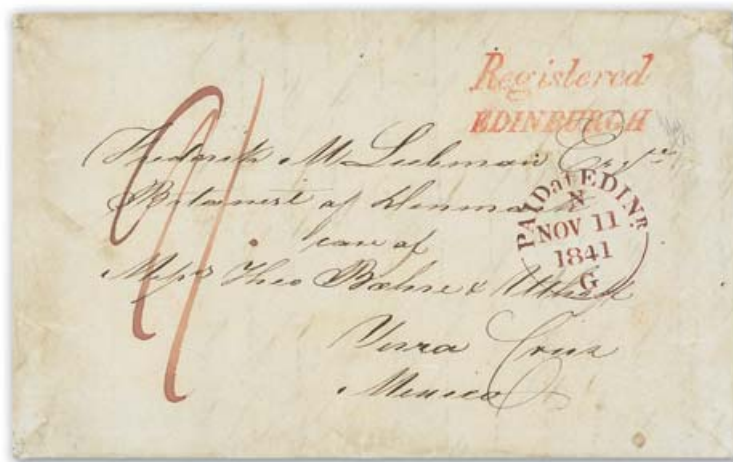 Registered
EDINBURGH
Frederik M Liebman Esqre
Botanist of Denmark
care of
Messrs Theo Bahre &
Verra Cruz
Mexico
PAID at EDINR
N
NOV 11
1841
G